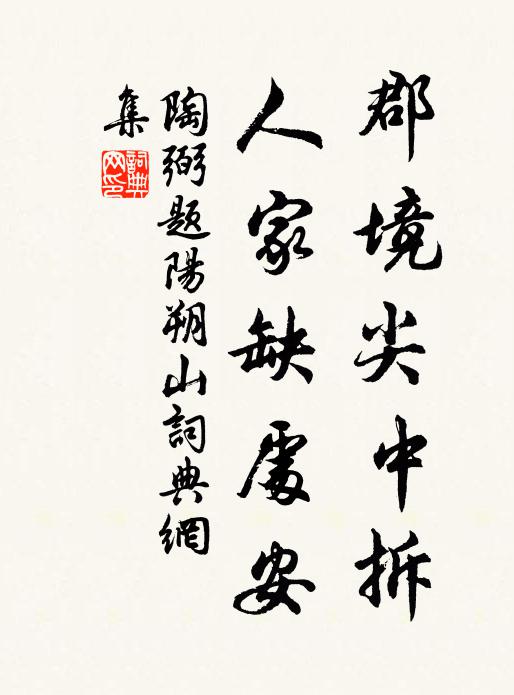 郡境尖中拆
人家缺處安
陶弼題陽朔山詞典網
集
詞典网印